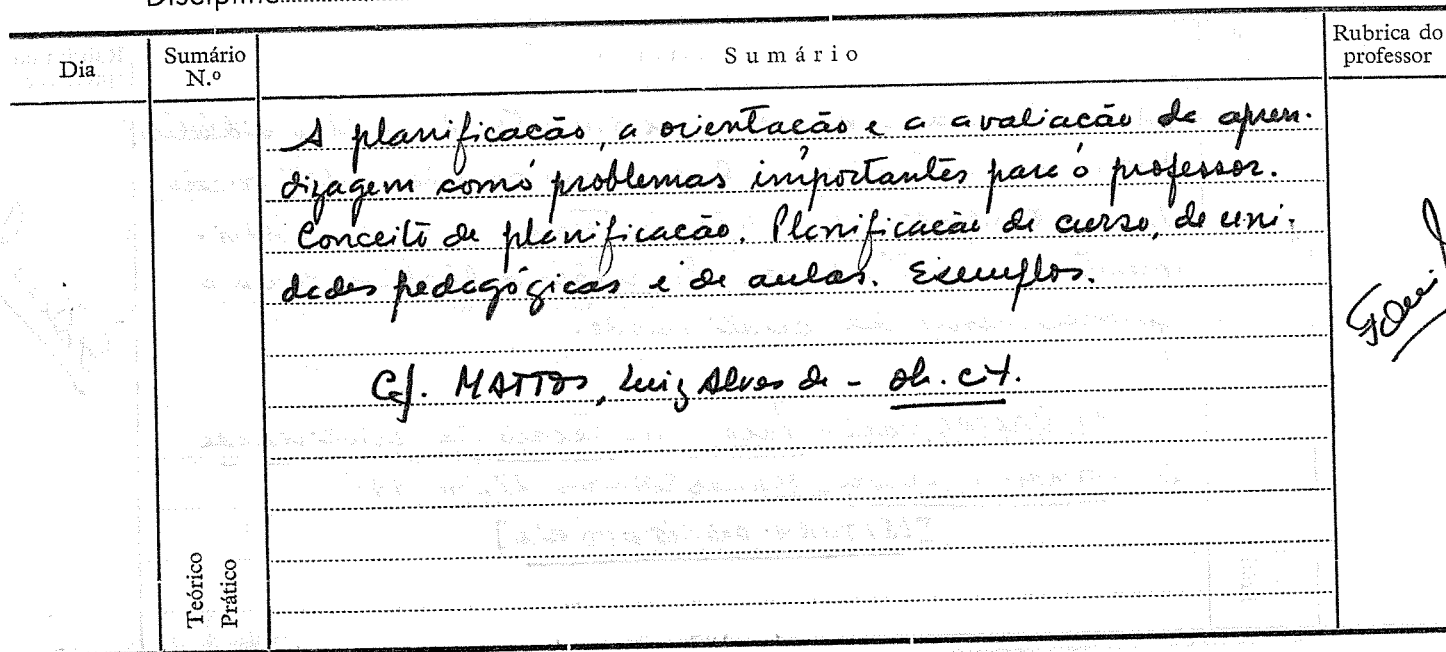 Dia
Sumário N.º
Sumário
Rubrica do professor
A planificação, a orientação e a avaliação da apren-
dizagem como problemas importantes para o professor.
Conceito de planificação. Planificação de curso, de uni-
dades pedagógicas e de aulas. Exemplos.
Cf. MATTOS, Luiz Alves de - ob. cit.
Teórico
Prático